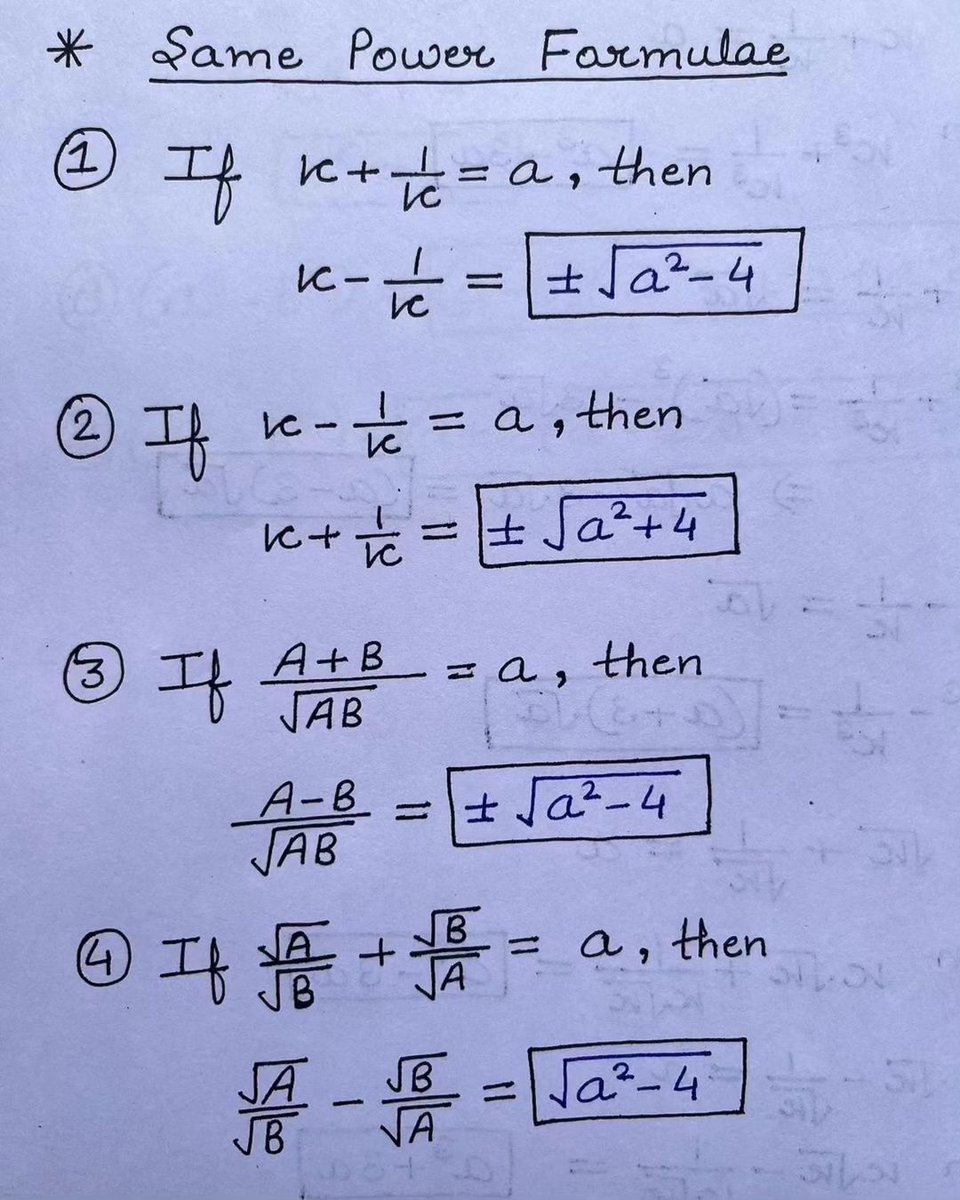 * Same Power Formulae
① If x + 1/x = a, then
x - 1/x = ± √(a² - 4)
② If x - 1/x = a, then
x + 1/x = ± √(a² + 4)
③ If (A + B)/√(AB) = a, then
(A - B)/√(AB) = ± √(a² - 4)
④ If √A/√B + √B/√A = a, then
√A/√B - √B/√A = √(a² - 4)